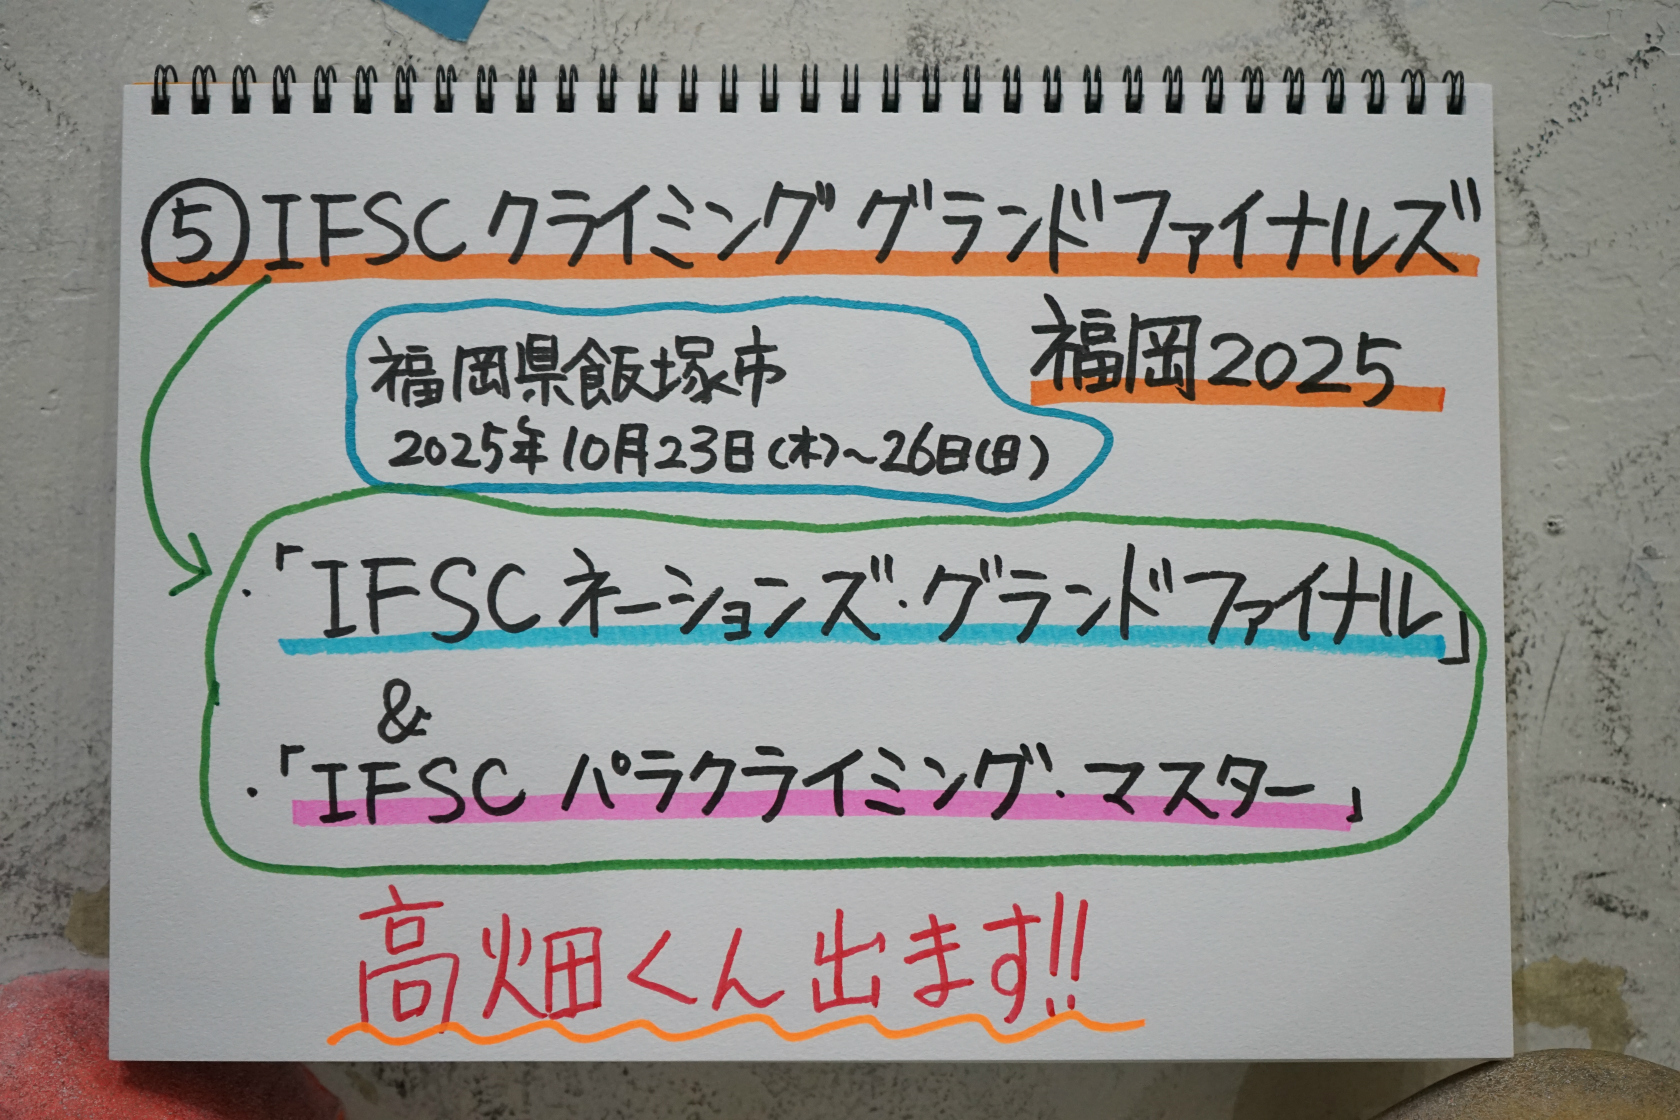 ⑤IFSC クライミング グランドファイナルズ
福岡2025
福岡県飯塚市
2025年10月23日(木)~26日(日)
・「IFSC ネーションズ・グランドファイナル」
&
・「IFSC パラクライミング・マスター」
高畑くん出ます!!